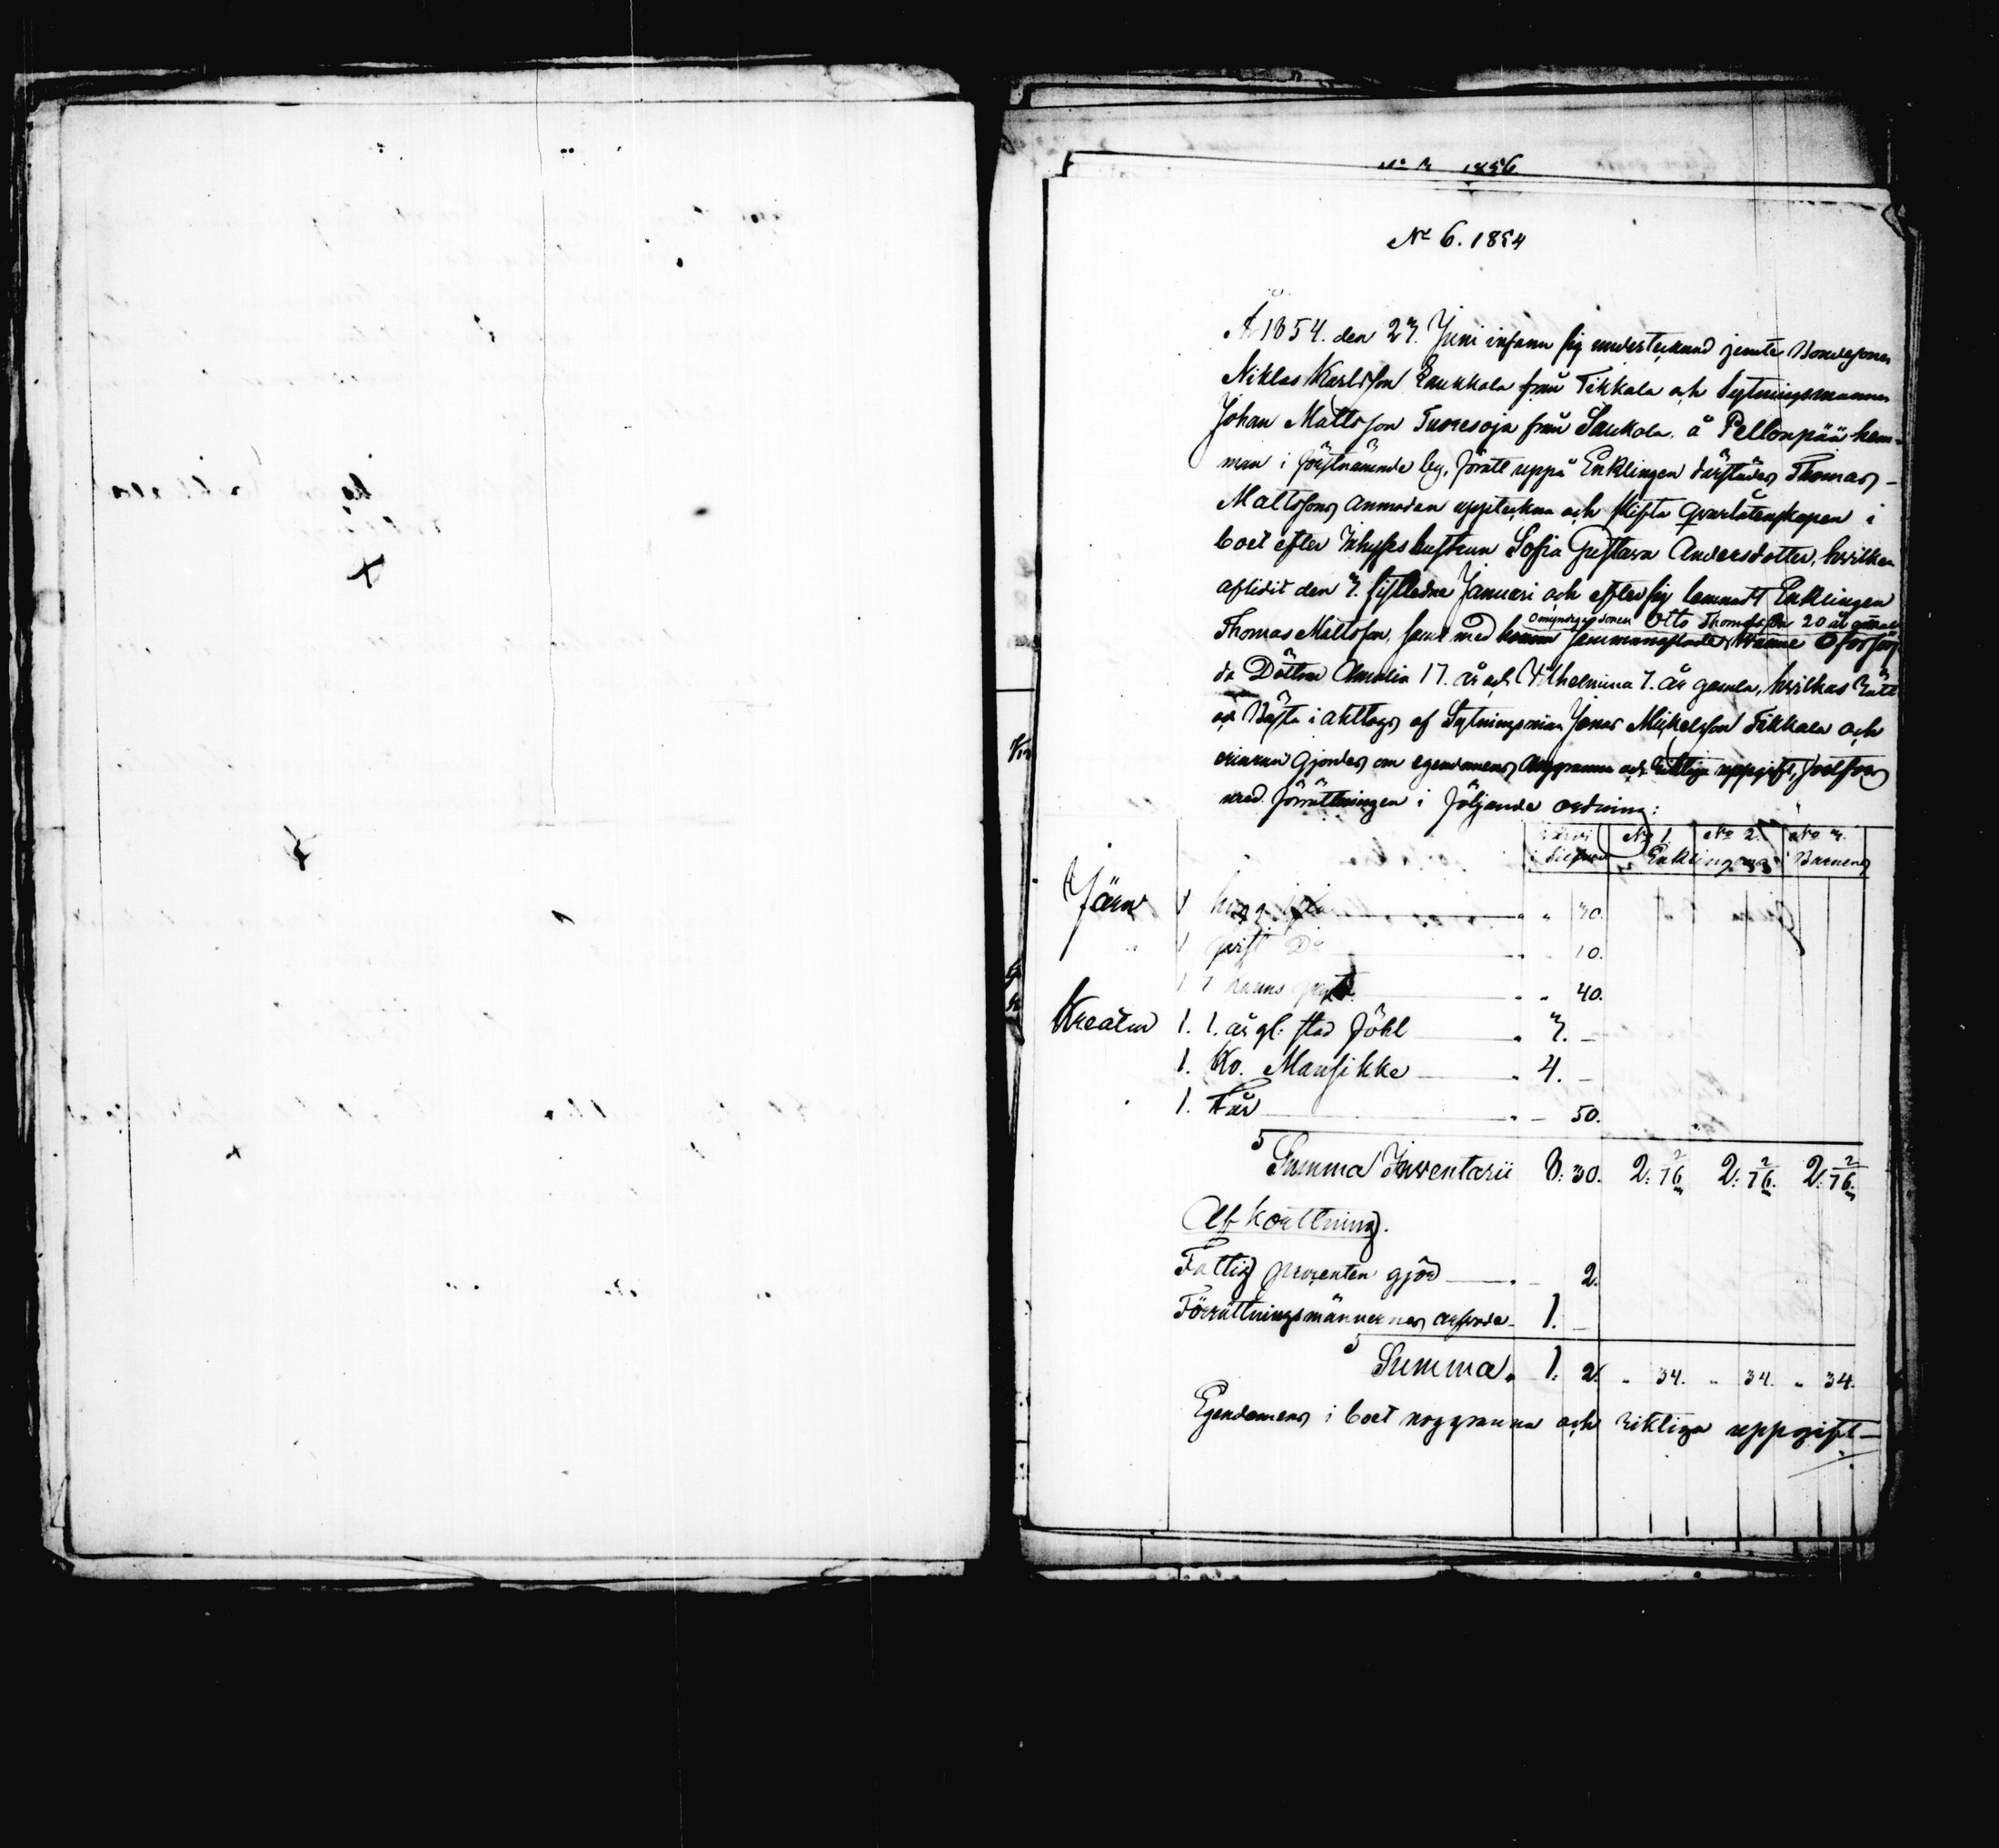 1856.
No 6. 1854
År 1854. den 23. Juni infann sig undertecknad jemte Bondesonen
Niklas Karlsson Laukkala från Tikkala och Sytningsmannen
Johan Mattsson Tuoresoja från Saukola, å Pellonpää hem-
man i förstnämnde by, förutt uppå Enklingen därstädes Thomas
Mattssons anmodan uppteckna och skifta qvarlåtenskapen i
boet efter Inhyses hustrun Sofia Gustava Andersdotter, hvilken
aflidit den 3. sistledne Januari och efter sig lemnadt Enklingen
omyndige sonen Otto Thomasson 20 år gammal
Thomas Mattsson, samt med henne sammanaflade Oförsörj
da Döttrar Amalia 17. år och Vilhelmina 7. år gamla, hvilkas Rätt
och Bästa i akttogs af Sytningsman Jonas Mickelsson Tikkala och
erinran gjordes om egendomens noggranna och riktiga uppgift, hvarföre
med förrättningen i följande ordning:
Silfver No 1. No 2. No 3.
Enklingens Barnens
Järn 1 hugg " " 30.
1 D:o " - 10.
1 3 kanns " " 40.
Kreatur 1. 1. år gl: stod föhl " 3. -
1. Ko. Mansikke " 4. -
1. Får " - 50.
Summa Inventarii 8. 30. 2. 76 2/3 2. 76 2/3 2. 76 2/3
Afkortning.
Fattig procenten gjör " - 2.
Förrättningsmännernas arfvode - 1. -
Summa " 1. 2. " 34. " 34. " 34.
Egendomens i boet noggranna och riktiga uppgift